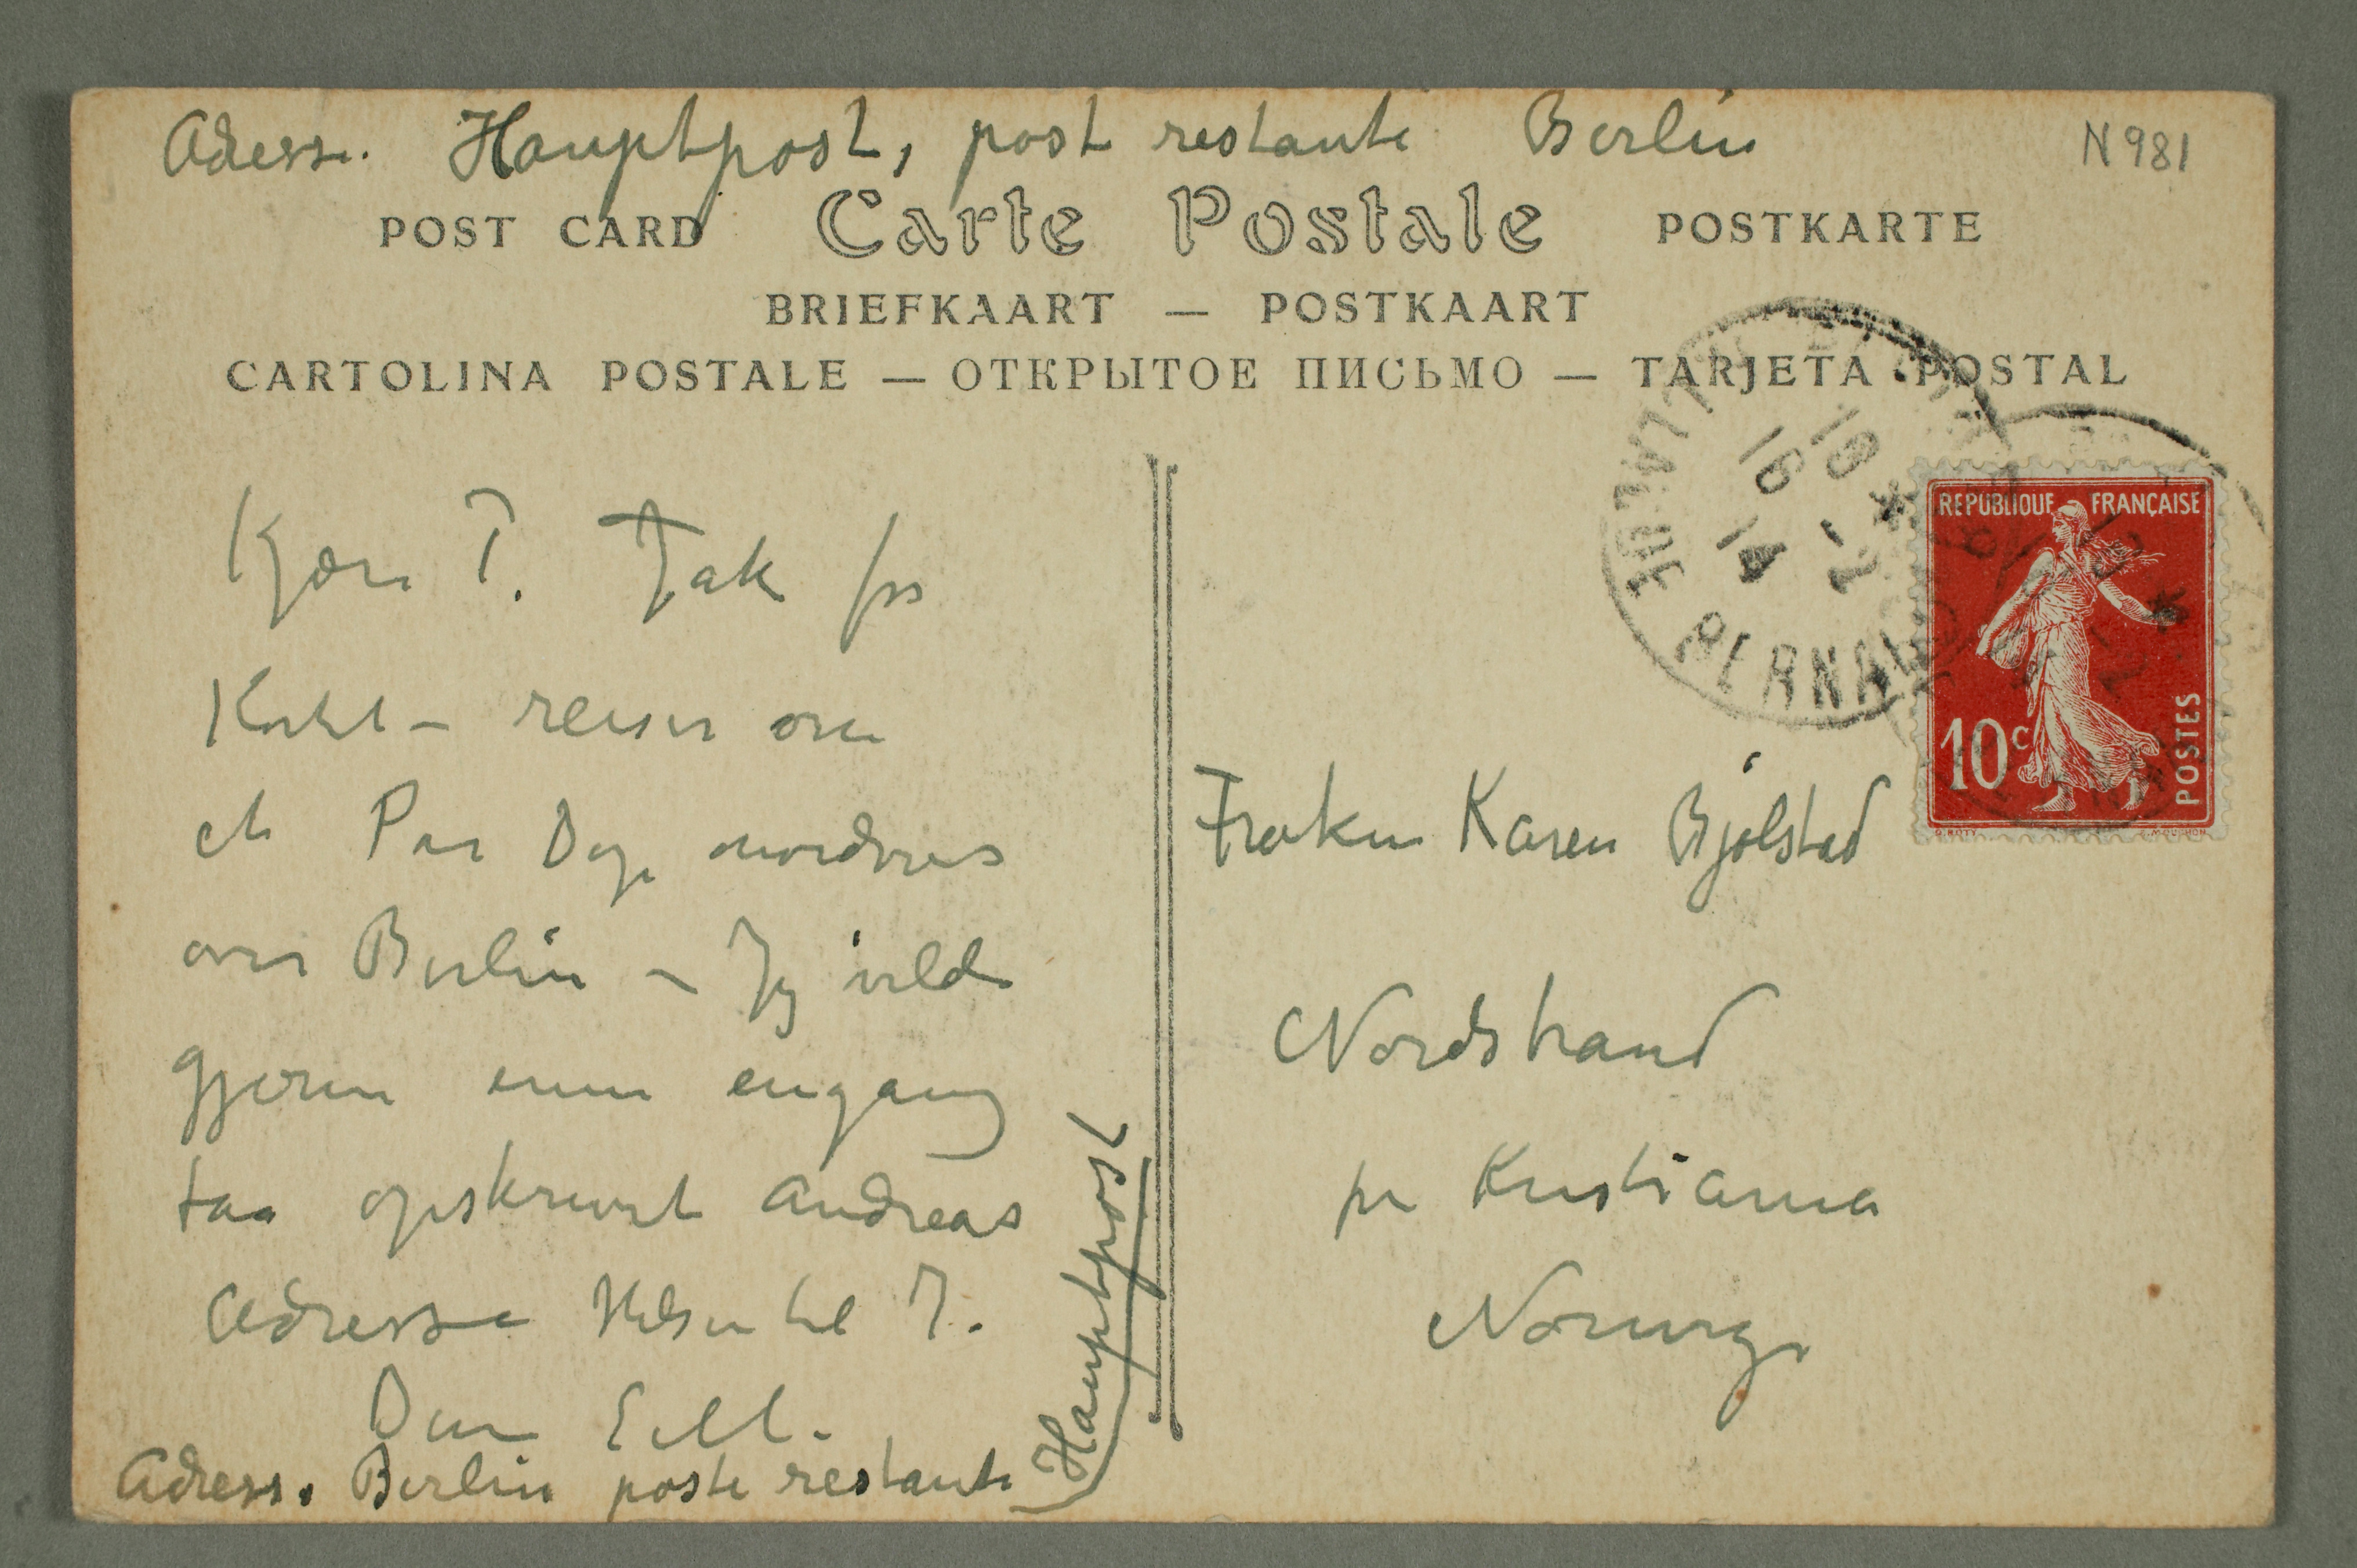 Adress. Hauptpost, post restante Berlin
N 981
POST CARD Carte Postale POSTKARTE
BRIEFKAART — POSTKAART
CARTOLINA POSTALE — ОТКРЫТОЕ ПИСЬМО — TARJETA POSTAL
Kjære T. Tak for
Kortet – reiser om
et Par Dage nordover
over Berlin – Jeg vilde
gjerne ennu engang
faa opskrevet Andreas
Adresse Hilsen til I.
Din E
Adress. Berlin poste restante
Hauptpost
19 *
16 -2
14
REPUBLIQUE FRANÇAISE
10c POSTES
O. ROTY
Frøken Karen Bjølstad
Nordstrand
pr Kristiania
Norwge